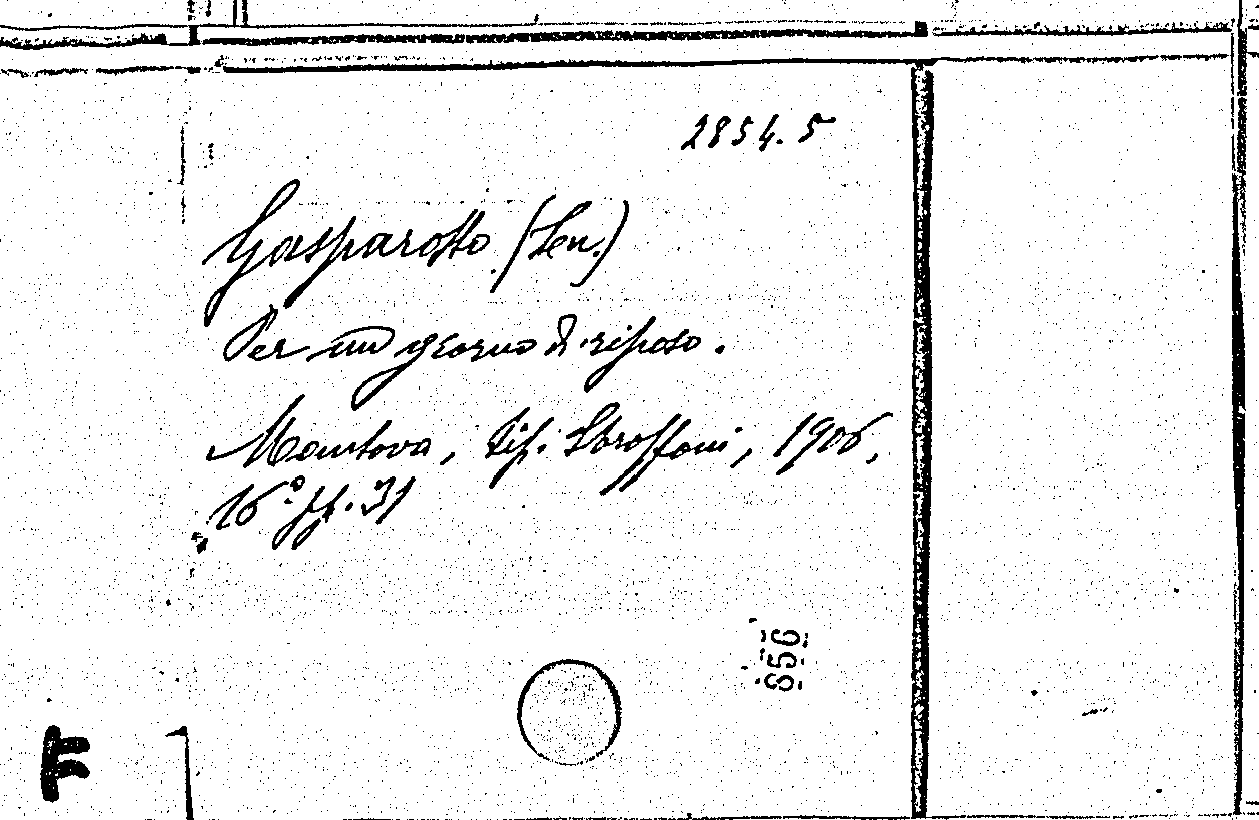 2854.5
Gasparotto (Len.)
Per un giorno di riposo.
Mantova, tip. Stroffoni, 1906,
16° pp. 31
856
F